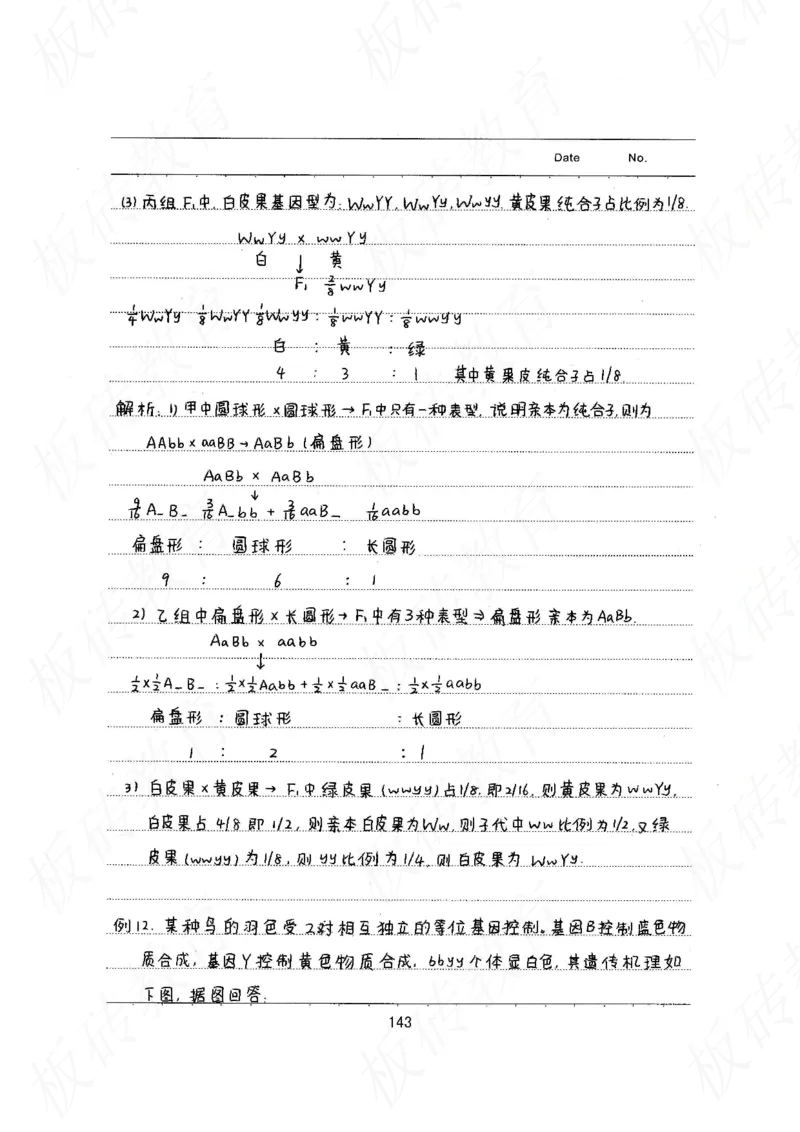 Date No.
(3) 丙组F₁中,白皮果基因型为:WwYY,WwYy,Wwyy,黄皮果纯合子占比例为1/8.
WwYy × wwYy
白 ↓ 黄
F₁ 2/8 wwYy
1/4 WwYy 1/8 WwYY 1/8 Wwyy : 1/8 wwYY : 1/8 wwyy
白 : 黄 : 绿
4 : 3 : 1 其中黄果皮纯合子占1/8.
解析:1) 甲中圆球形×圆球形→F₁中只有一种表型,说明亲本为纯合子,则为
AAbb×aaBB→AaBb(扁盘形)
AaBb × AaBb
↓
9/16 A_B_ 3/16 A_bb + 3/16 aaB_ 1/16 aabb
扁盘形 : 圆球形 : 长圆形
9 : 6 : 1
2) 乙组中扁盘形×长圆形→F₁中有3种表型⇒扁盘形亲本为AaBb.
AaBb × aabb
↓
1/2×1/2A_B_ : 1/2×1/2Aabb + 1/2×1/2aaB_ : 1/2×1/2aabb
扁盘形 : 圆球形 : 长圆形
1 : 2 : 1
3) 白皮果×黄皮果→F₁中绿皮果(wwyy)占1/8,即2/16,则黄皮果为wwYy,
白皮果占4/8即1/2,则亲本白皮果为Ww,则子代中ww比例为1/2,又绿
皮果(wwyy)为1/8,则yy比例为1/4,则白皮果为WwYy.
例12. 某种鸟的羽色受2对相互独立的等位基因控制。基因B控制蓝色物
质合成,基因Y控制黄色物质合成,bbyy个体显白色,其遗传机理如
下图,据图回答:
143
板砖教育